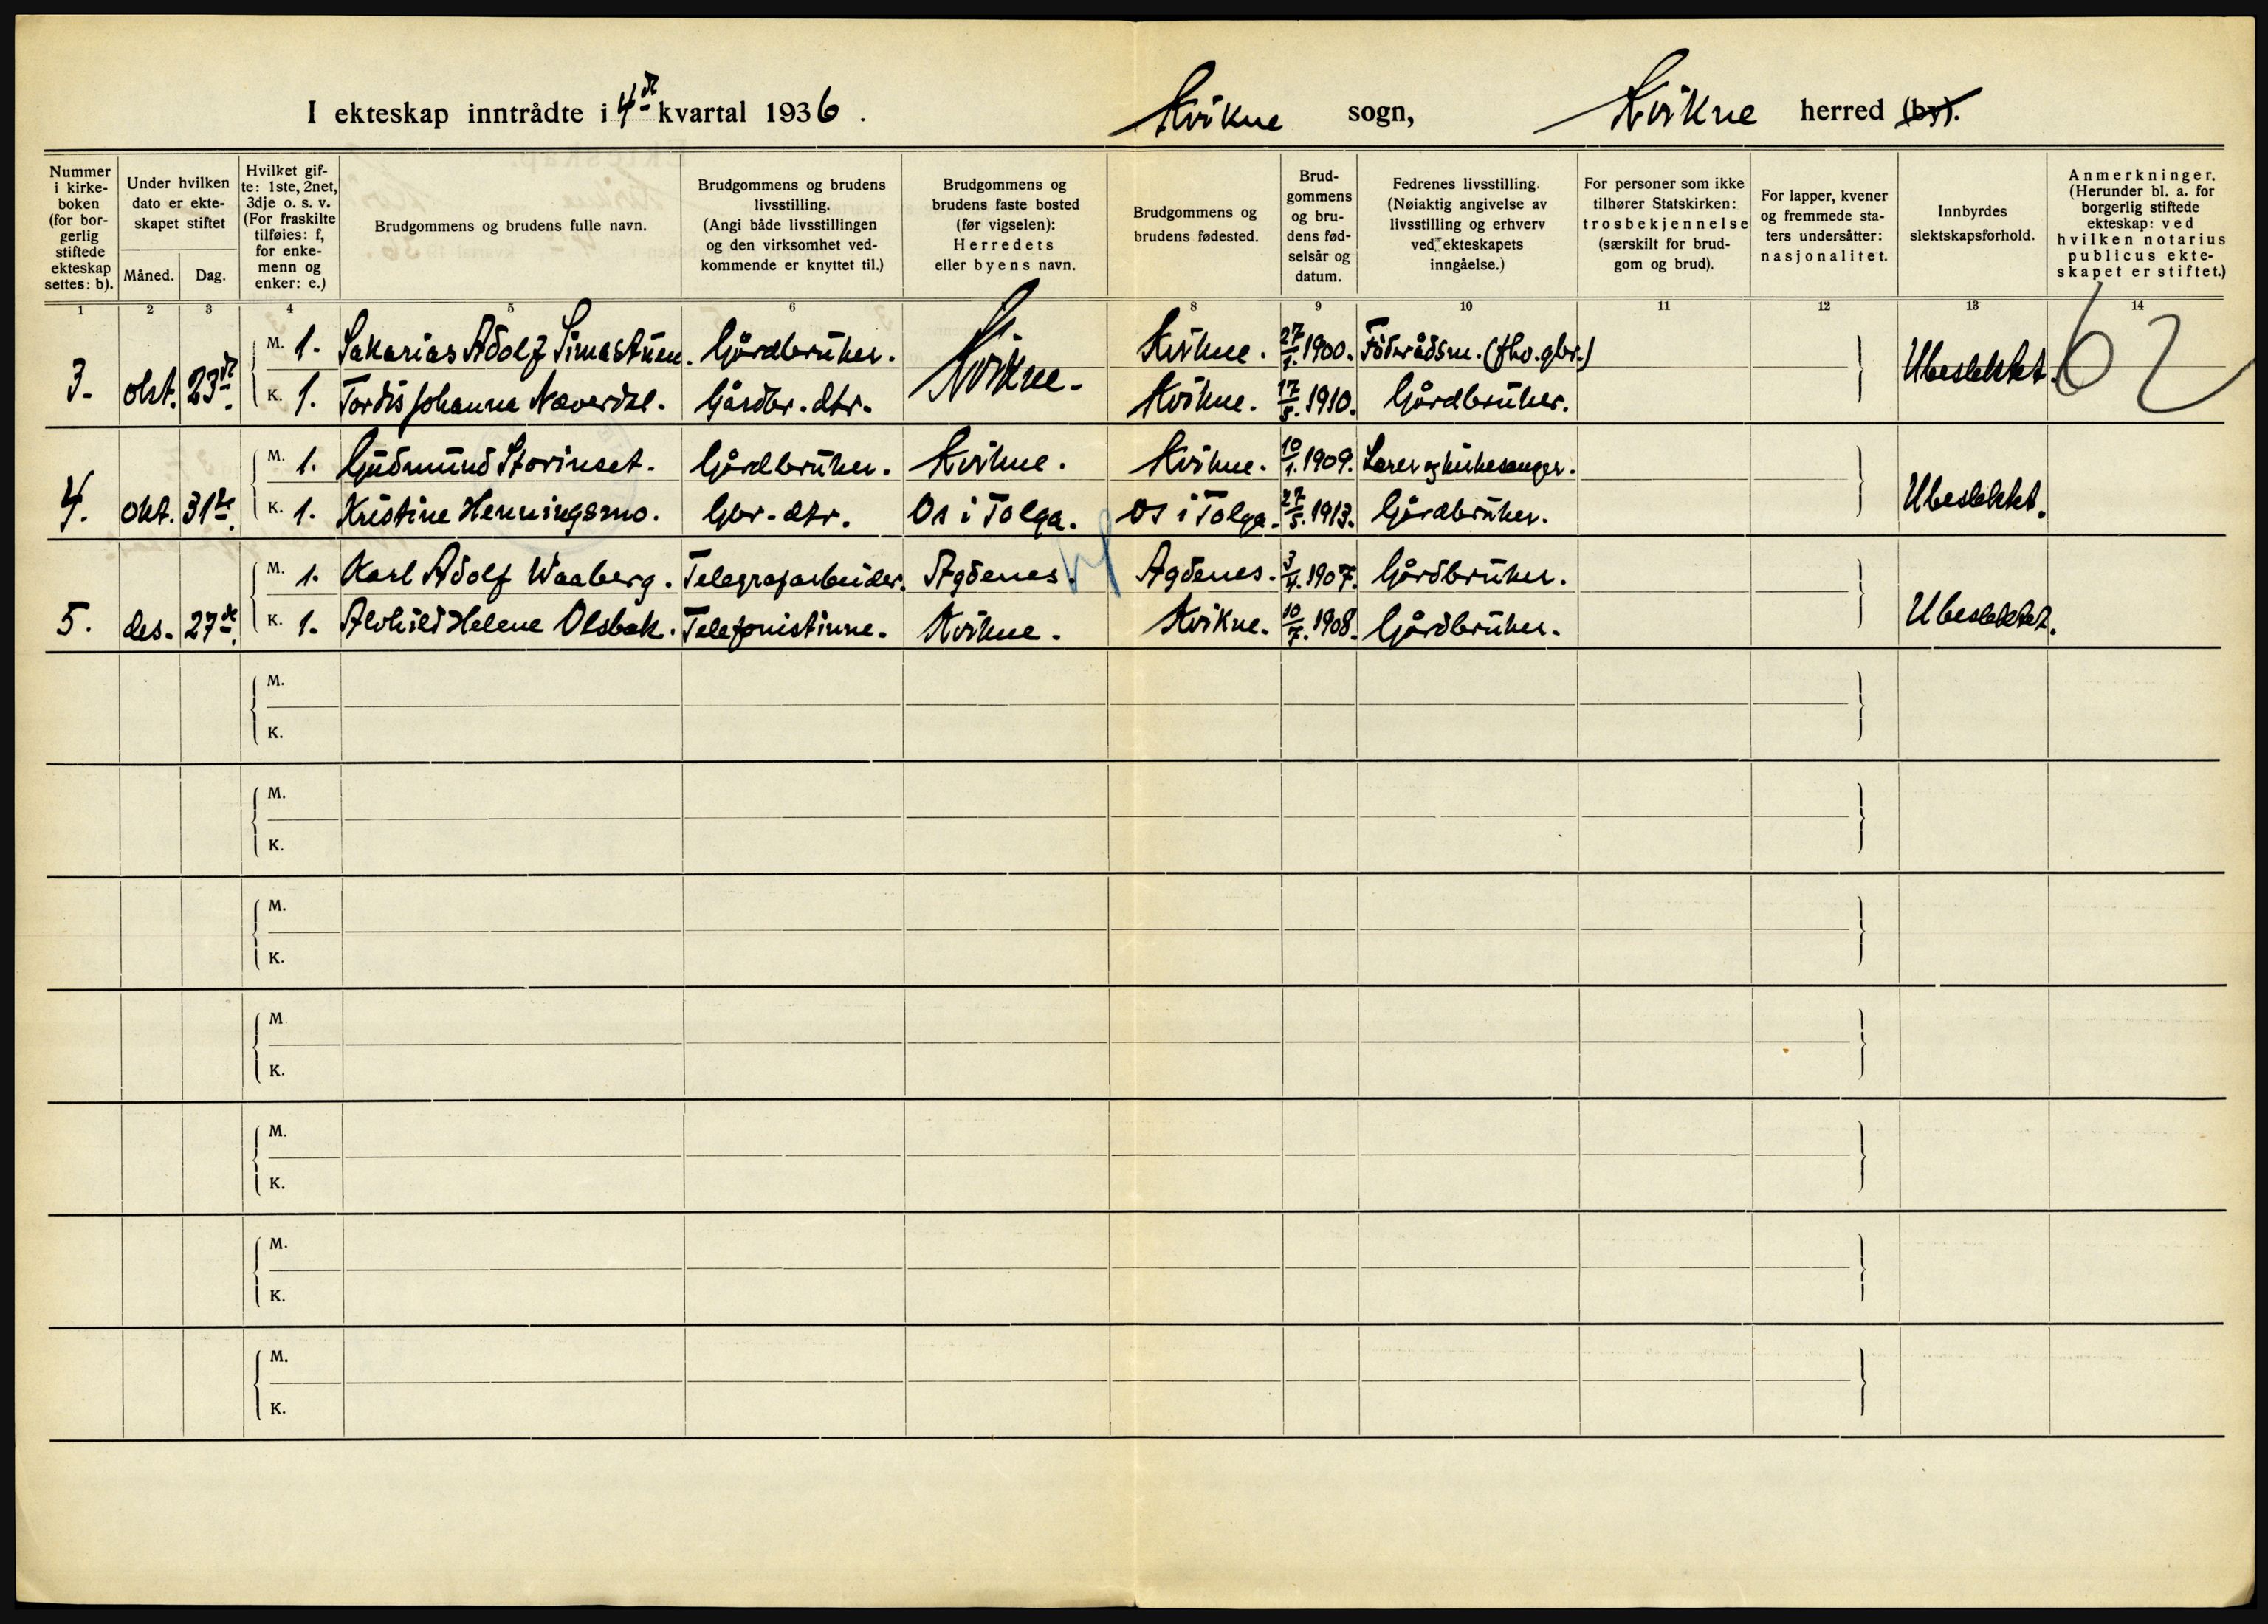 I ekteskap inntrådte i 4de kvartal 1936. Kvikne sogn, Kvikne herred (by).
Nummer i kirke-boken (for bor-gerlig stiftede ekteskap settes: b).
Under hvilken dato er ekte-skapet stiftet
Måned. Dag.
Hvilket gif-te: 1ste, 2net, 3dje o. s. v. (For fraskilte tilføies: f, for enke-menn og enker: e.)
Brudgommens og brudens fulle navn.
Brudgommens og brudens livsstilling. (Angi både livsstillingen og den virksomhet ved-kommende er knyttet til.)
Brudgommens og brudens faste bosted (før vigselen): Herredets eller byens navn.
Brudgommens og brudens fødested.
Brud-gommens og bru-dens fød-selsår og datum.
Fedrenes livsstilling. (Nøiaktig angivelse av livsstilling og erhverv ved ekteskapets inngåelse.)
For personer som ikke tilhører Statskirken: trosbekjennelse (særskilt for brud-gom og brud).
For lapper, kvener og fremmede sta-ters undersåtter: nasjonalitet.
Innbyrdes slektskapsforhold.
Anmerkninger. (Herunder bl. a. for borgerlig stiftede ekteskap: ved hvilken notarius publicus ekte-skapet er stiftet.)
1 2 3 4 5 6 8 9 10 11 12 13 14
3. okt. 23de M. 1. Sakarias Adolf Simastuen. Gårdbruker. Kvikne. Kvikne. 27/1. 1900. Föderådsm. (fhv. gbr.) Ubeslektet. 62
K. 1. Tordis Johanne Næverdal. Gårdbr. dtr. Kvikne. 17/5. 1910. Gårdbruker.
4. okt. 31te. M. 1. Gudmund Storinset. Gårdbruker. Kvikne. Kvikne. 10/1. 1909. Lærer og kirkesanger. Ubeslektet.
K. 1. Kristine Henningsmo. Gbr-dtr. Os i Tolga. Os i Tolga. 27/5. 1913. Gårdbruker.
5. des. 27de. M. 1. Karl Adolf Waaberg. Telegrafarbeider. Agdenes. Agdenes. 3/4. 1907. Gårdbruker. Ubeslektet.
K. 1. Alvhild Helene Olsbak. Telefonistinne. Kvikne. Kvikne. 10/7. 1908. Gårdbruker.
M.
K.
M.
K.
M.
K.
M
K.
M.
K.
M.
K.
M.
K.